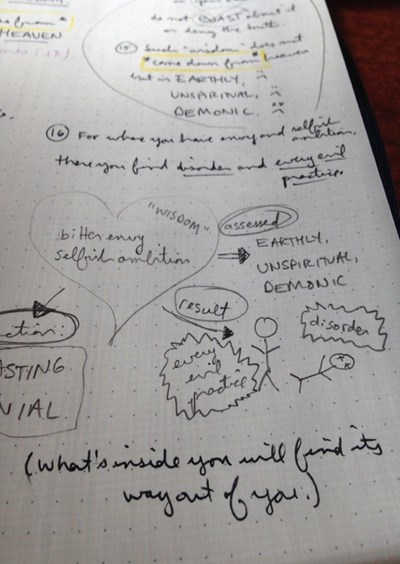 do not BOAST about it
or deny the truth
ce from*
HEAVEN
(15) Such "wisdom" does not
*come down from* heaven
but is EARTHLY,
UNSPIRITUAL,
DEMONIC.
(16) For where you have envy and selfish ambition,
there you find disorder and every evil
practice.
"WISDOM"
bitter envy
selfish ambition
assessed
EARTHLY,
UNSPIRITUAL,
DEMONIC
result
ction:
ASTING
NIAL
every
evil
practice
disorder
(What's inside you will find its
way out of you.)